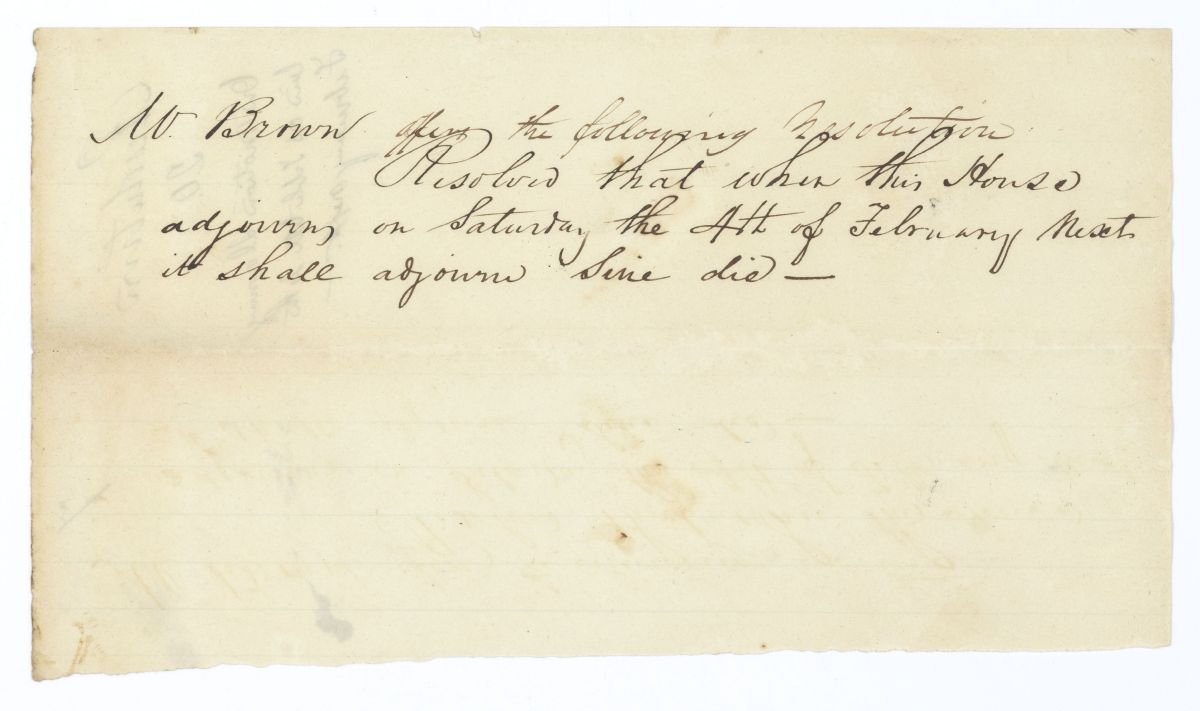 Mr. Brown offers the following Resolution
Resolved that when this House
adjourns on Saturday the 4th of February Next
it shall adjourn Sine die —